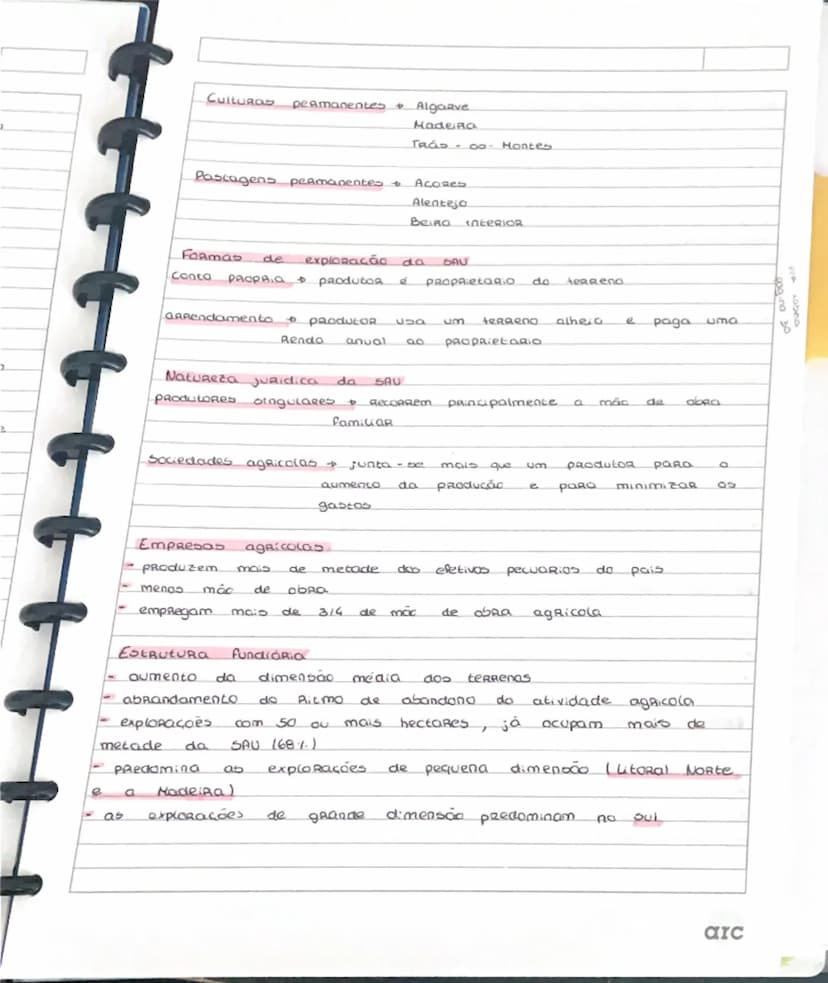 Culturas permanentes → Algarve
Madeira
Trás-os-Montes
Pastagens permanentes → Açores
Alentejo
Beira interior
Formas de exploração da SAU
conta própria → produtor é proprietário do terreno
arrendamento → produtor usa um terreno alheio e paga uma
renda anual ao proprietário
Natureza jurídica da SAU
produtores singulares → recorrem principalmente a mão de obra
familiar
Sociedades agrícolas → junta-se mais que um produtor para o
aumento da produção e para minimizar os
gastos
Empresas agrícolas
- produzem mais de metade dos efetivos pecuários do país
- menos mão de obra
- empregam mais de 3/4 de mão de obra agrícola
Estrutura fundiária
- aumento da dimensão média dos terrenos
- abrandamento do ritmo de abandono da atividade agrícola
- explorações com 50 ou mais hectares, já ocupam mais de
metade da SAU (68%)
- predomina as explorações de pequena dimensão (Litoral Norte
e a Madeira)
- as explorações de grande dimensão predominam no sul
arc